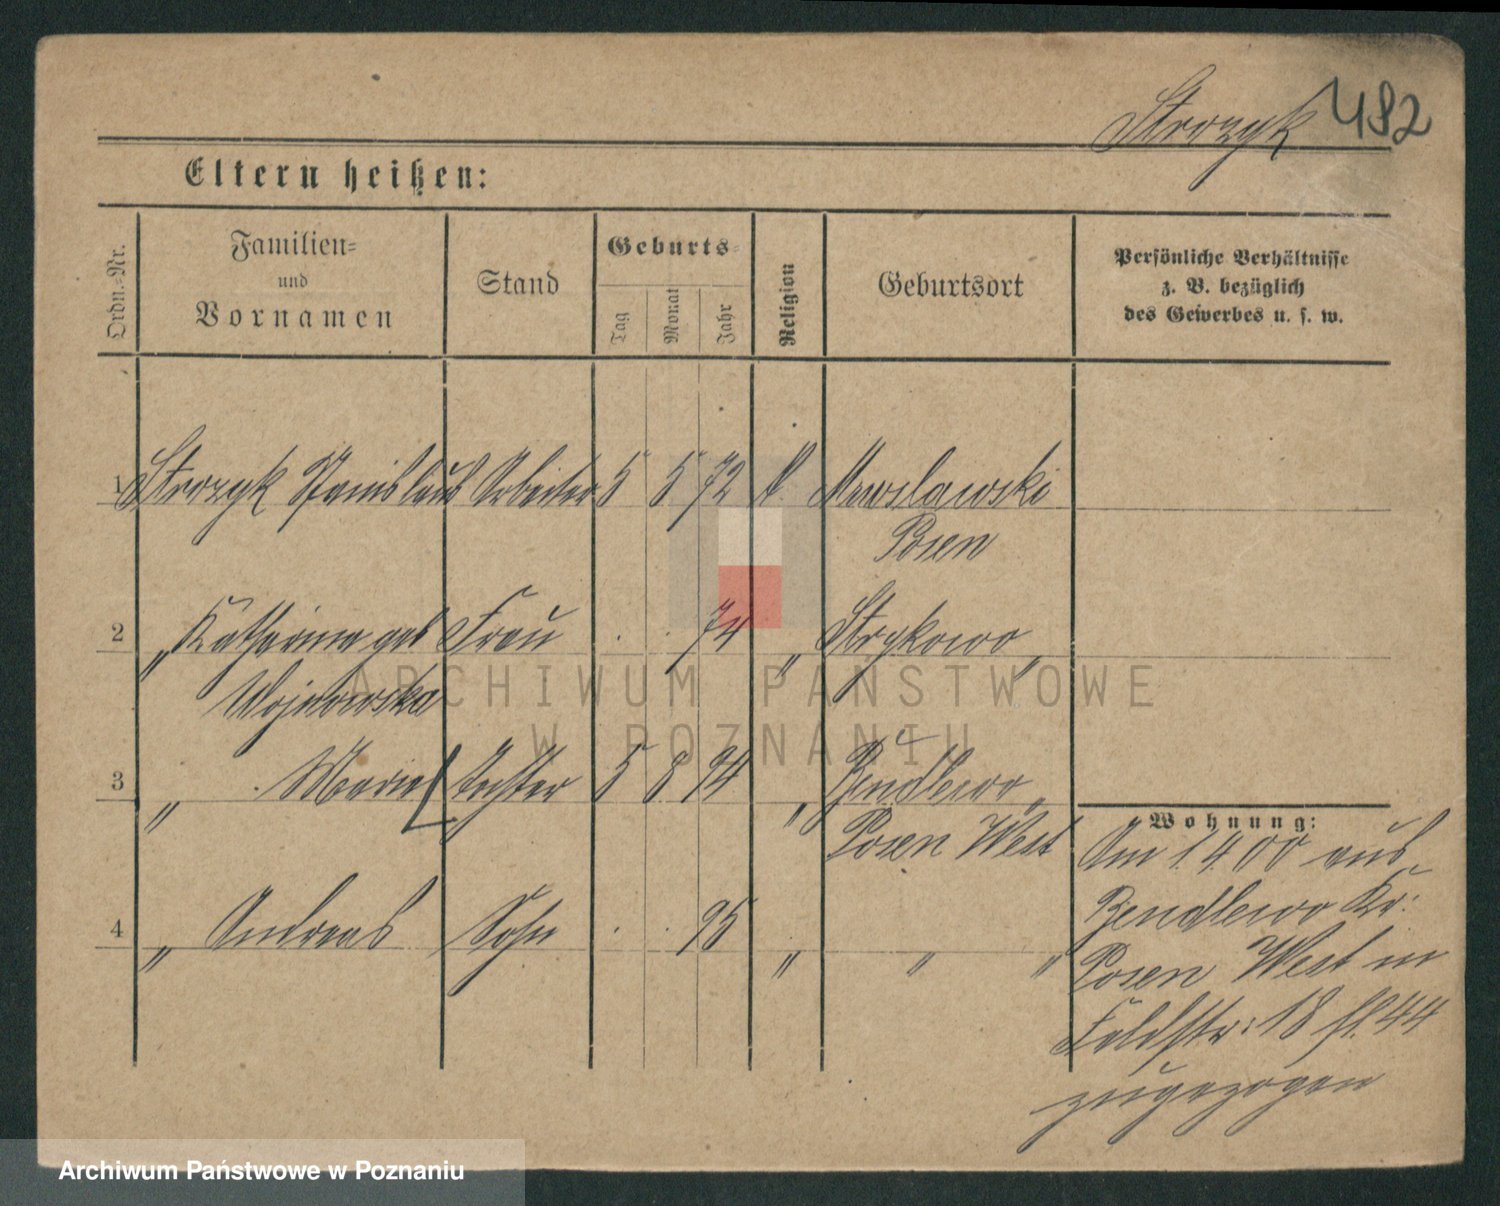 Strozyk 482
Eltern heißen:
Ordn.-Nr.
Familien-
und
Vornamen
Stand
Geburts-
Tag
Monat
Jahr
Religion
Geburtsort
Persönliche Verhältnisse
z. B. bezüglich
des Gewerbes u. s. w.
1 Strozyk Stanislaus Arbeiter 5 5 72 k.
Posen
2 " Katharina geb Frau . . 74 " Strykowo "
Wojnowska
3 " Maria Tochter 5 8 94 " Bendlewo "
Posen West
Wohnung:
Am 1.4.00 aus
Bendlewo Kr:
Posen West in
Feldstr: 18 44
zugezogen
4 " Andreas Sohn . . 95 " " "
ARCHIWUM PAŃSTWOWE
W POZNANIU
Archiwum Państwowe w Poznaniu